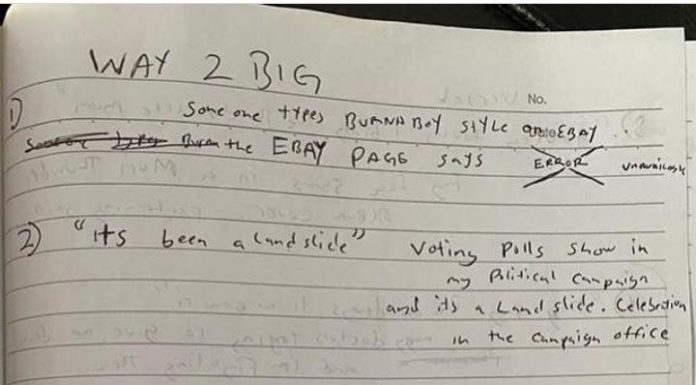 WAY 2 BIG
No.
1) Some one types BURNA BOY STYLE on EBAY
Burna the EBAY PAGE says ERROR unavailable
2) "its been a landslide" Voting Polls show in
my Political Campaign
and its a Landslide. Celebration
in the Campaign office